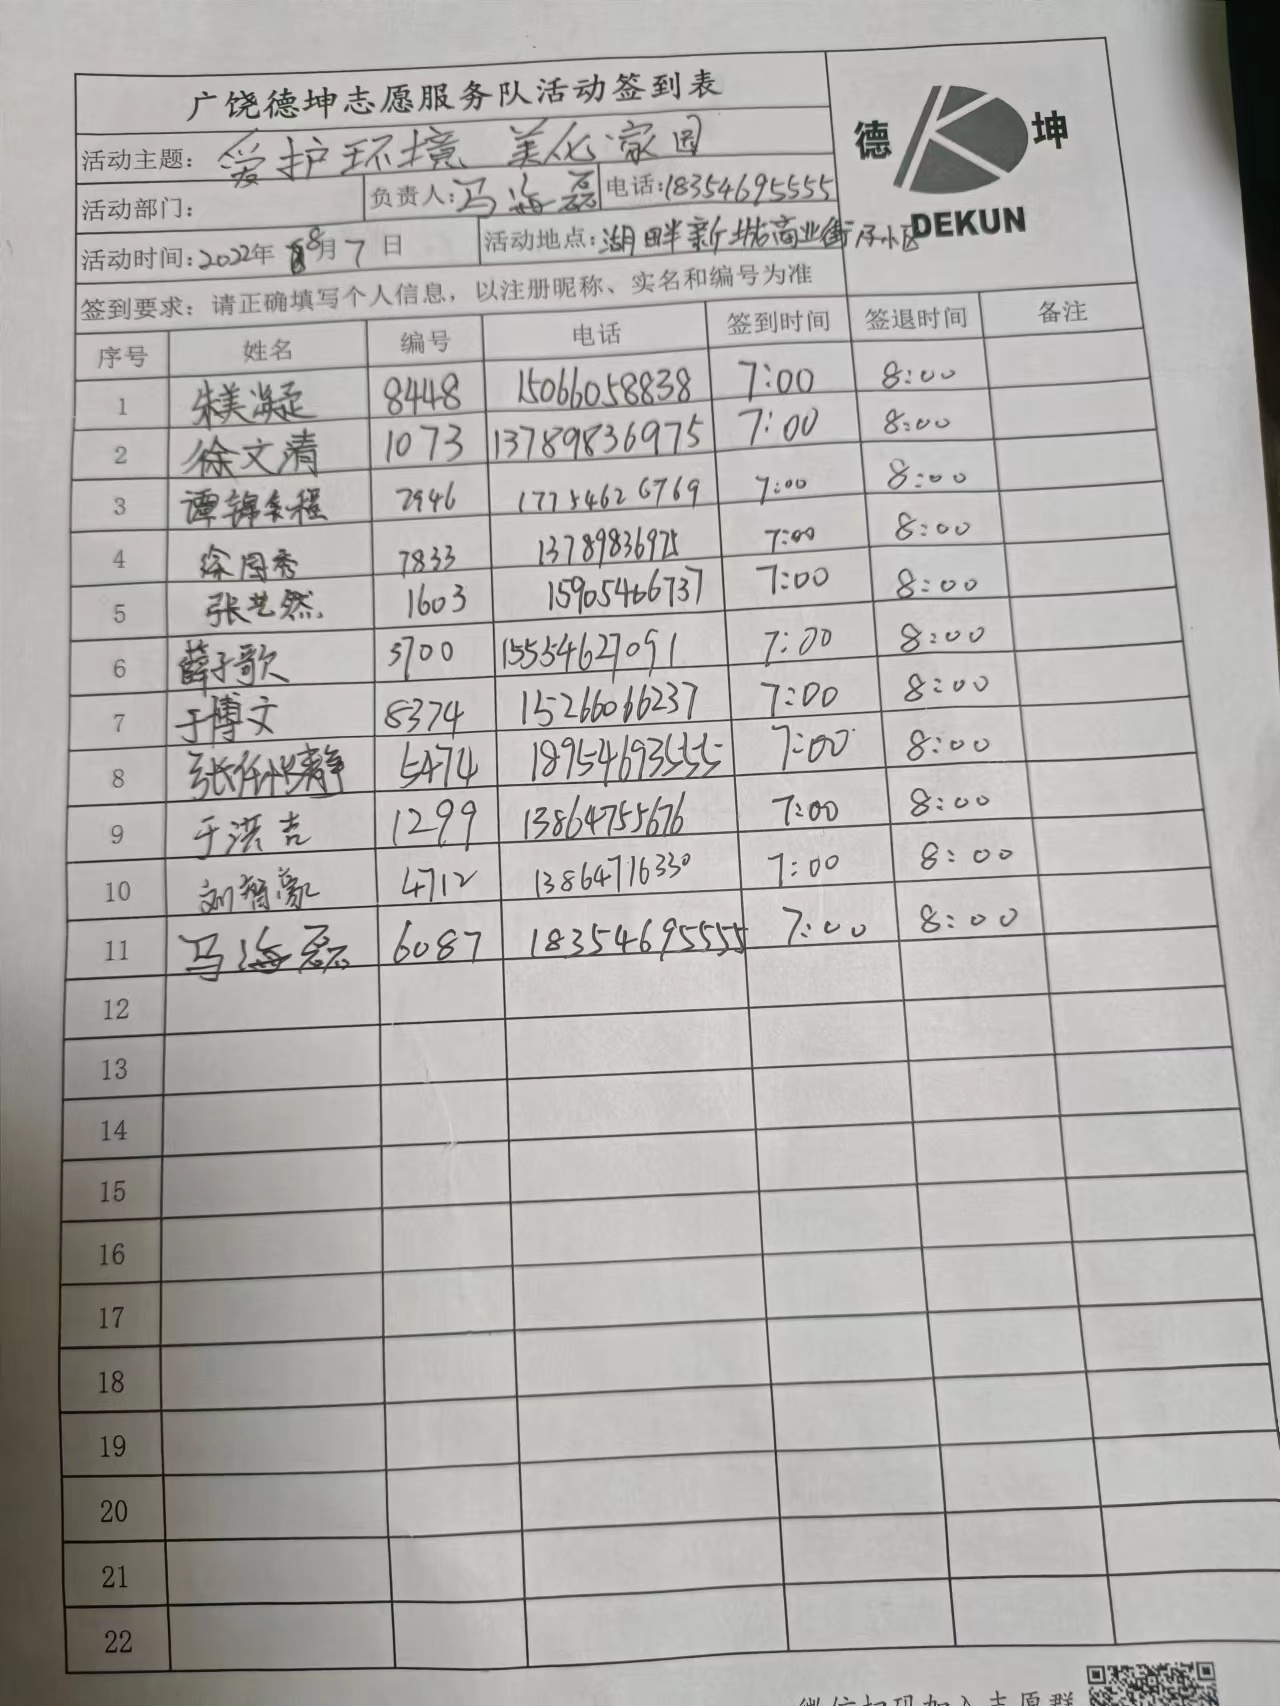 广饶德坤志愿服务队活动签到表
德 坤
DEKUN
活动主题：爱护环境 美化家园
活动部门： 负责人：马海磊 电话：18354695555
活动时间：2022年8月7日 活动地点：湖畔新城商业街 小区
签到要求：请正确填写个人信息，以注册昵称、实名和编号为准
序号 姓名 编号 电话 签到时间 签退时间 备注
1 朱美凝 8448 15066058838 7:00 8:00
2 徐文清 1073 13789836975 7:00 8:00
3 谭锦程 7946 17754626769 7:00 8:00
4 徐同秀 7833 13789836975 7:00 8:00
5 张艺然 1603 15905466737 7:00 8:00
6 薛子歌 3700 15554627091 7:00 8:00
7 于博文 8374 15266066237 7:00 8:00
8 张任 静 5474 18954693555 7:00 8:00
9 于洪吉 1299 13864755676 7:00 8:00
10 刘智豪 4712 13864716330 7:00 8:00
11 马海磊 6087 18354695555 7:00 8:00
12
13
14
15
16
17
18
19
20
21
22
微信扫码加入志愿群